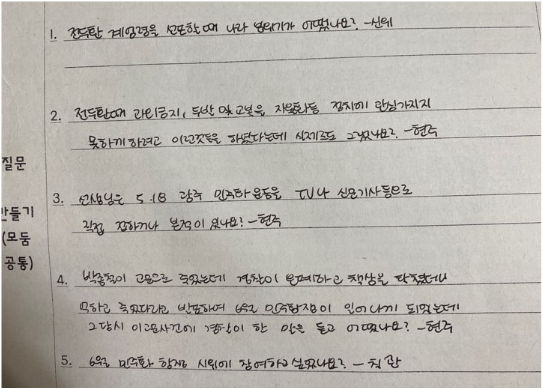 1. 전두환 계엄령을 선포할때 나라 분위기가 어땠나요? -신위
2. 전두환때 과외금지, 두발 및 교복을 자율화 등 정치에 관심가지지
못하게 하려고 이런것들을 하였다는데 실제로도 그랬나요? -현주
3. 선생님은 5.18 광주 민주화운동을 TV나 신문기사등으로
직접 접하거나 본적이 있나요? -현주
4. 박종철이 고문으로 죽었는데 경찰이 은폐하고 책상을 탁 쳤더니
억하고 죽었다라고 발표하여 6월 민주항쟁이 일어나게 되었는데
그당시 이런사건에 경찰이 한 말을 듣고 어땠나요? -현주
5. 6월 민주화 항쟁 시위에 참여하고 싶었나요? -
질문
만들기
(모둠
공통)